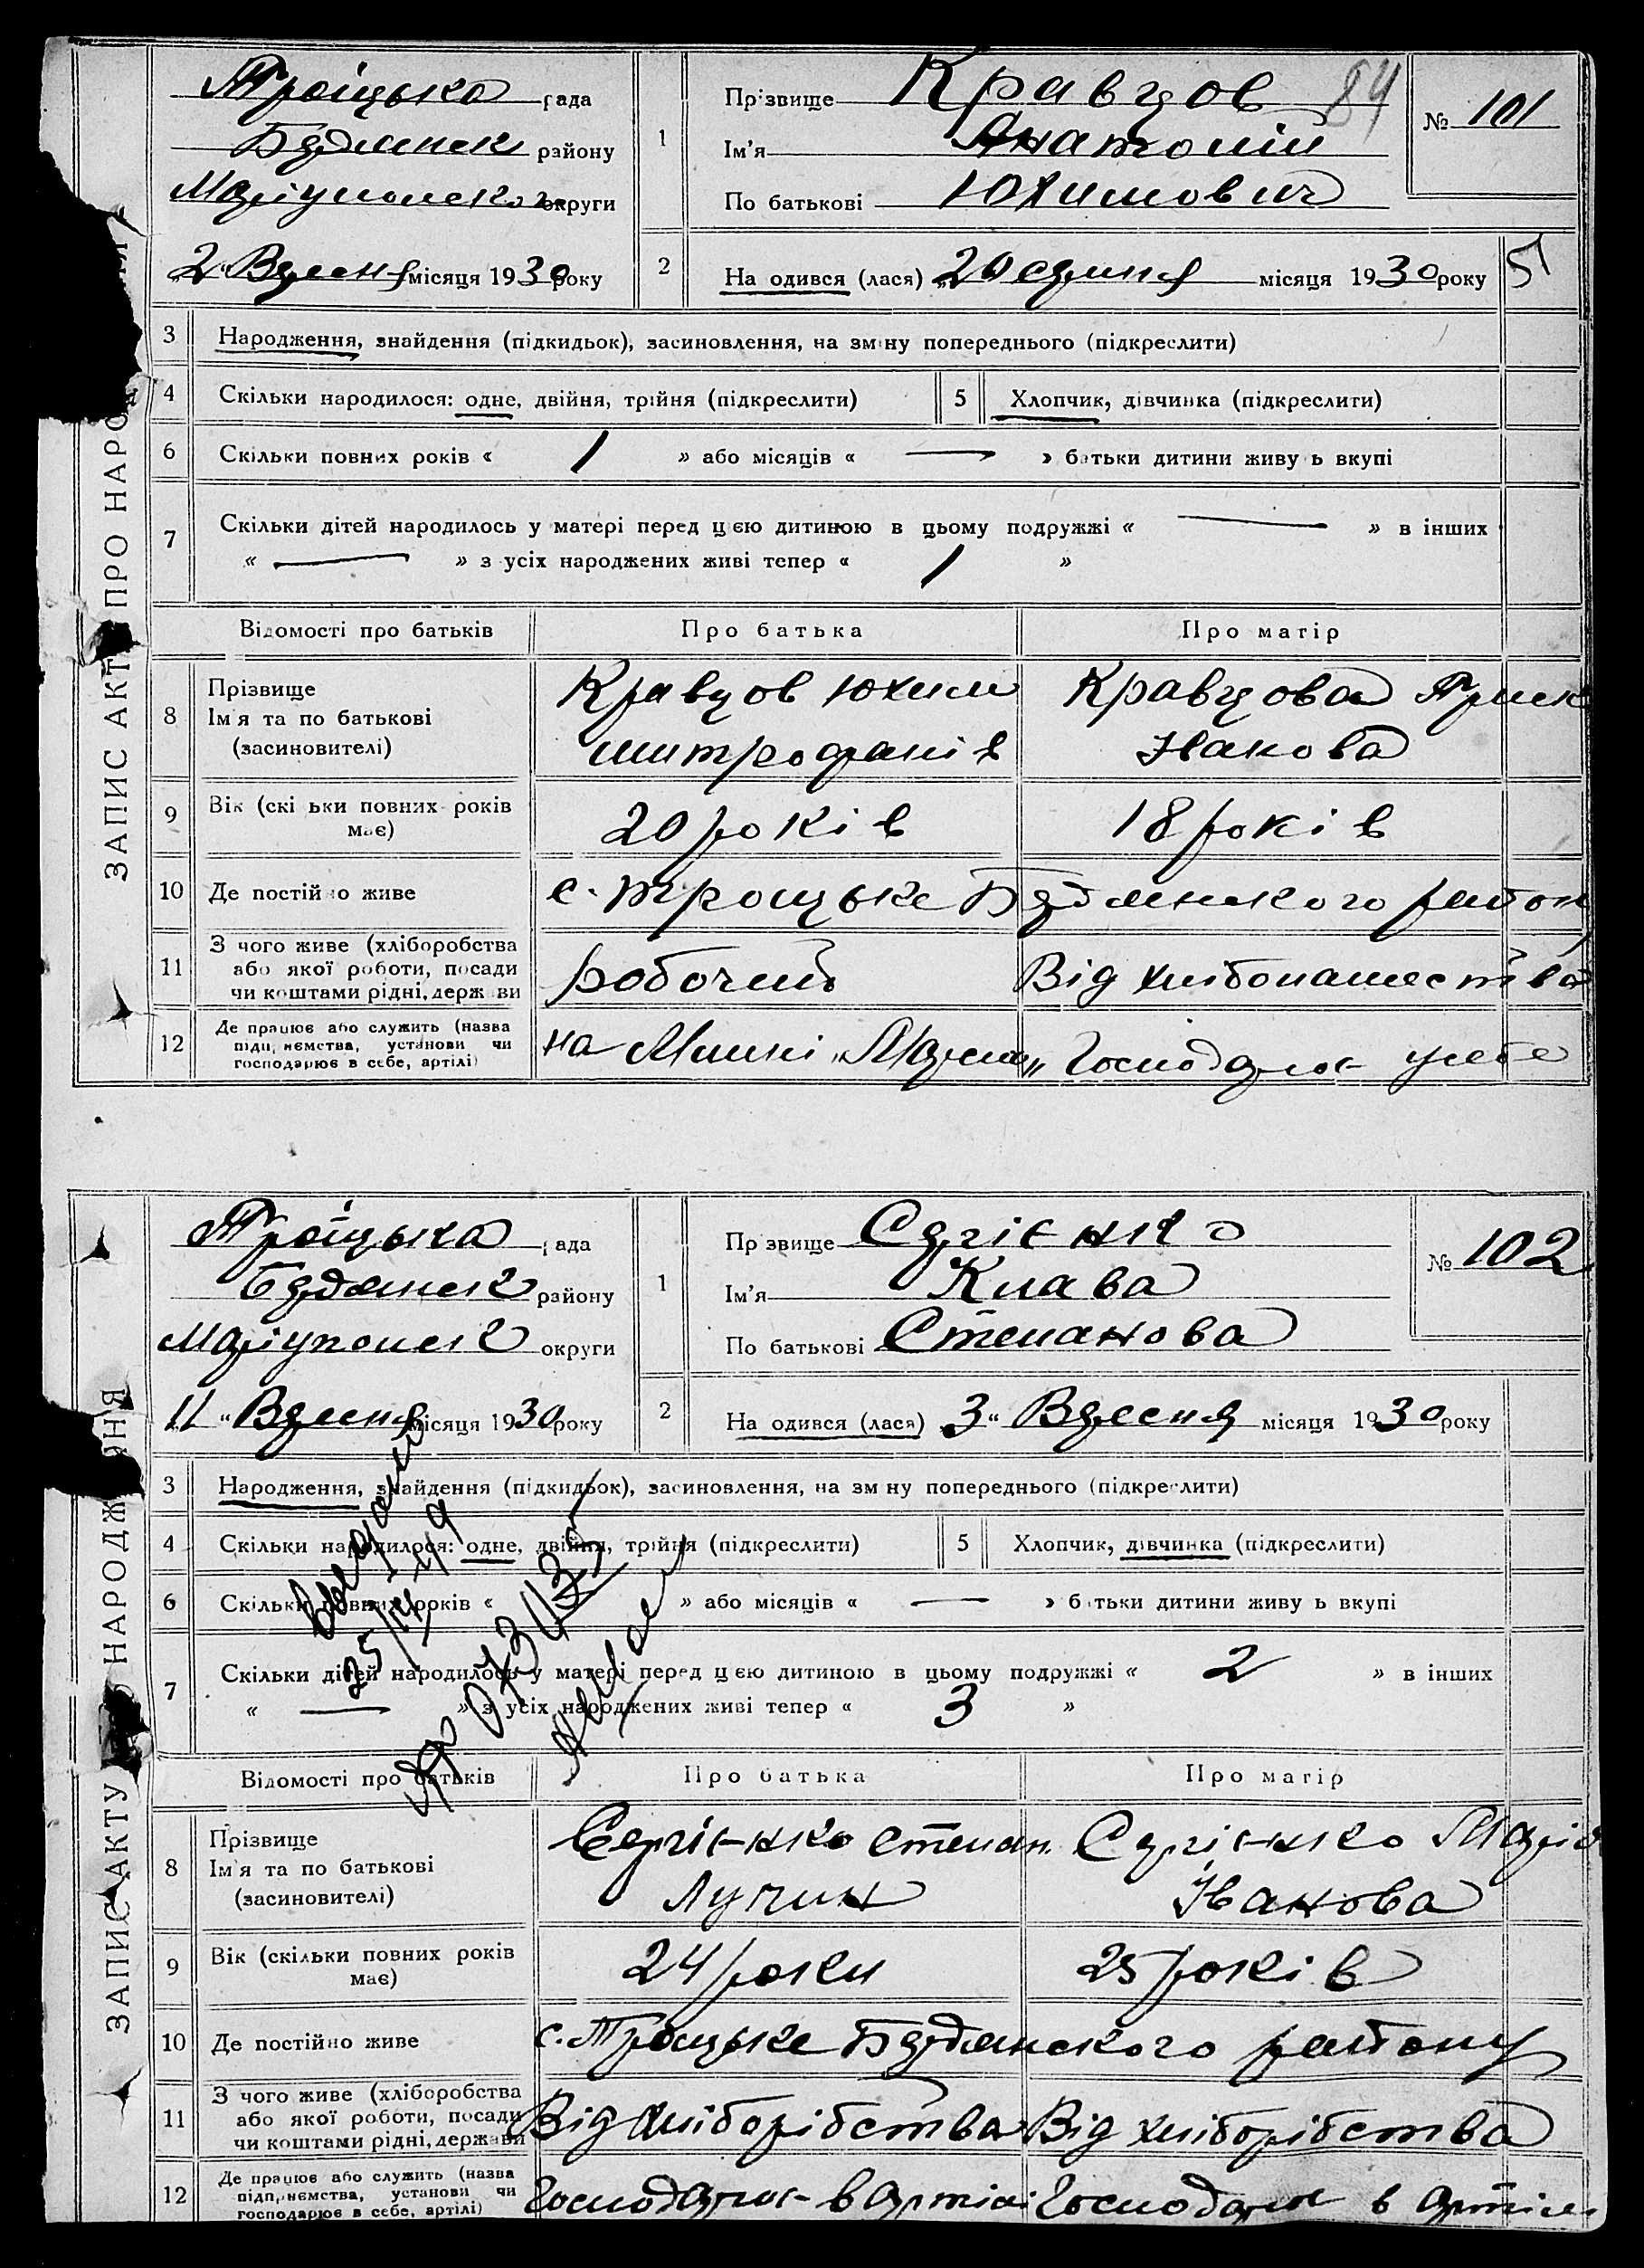 Троіцька рада
Прізвище Кравцов
84
№ 101
району
1
Ім'я Анатолій
округи
По батькові Юхимович
2 місяця 1930 року
2
На одився (лася) 20 місяця 1930 року
51
3 Народження, знайдення (підкидьок), засиновлення, на зміну попереднього (підкреслити)
4 Скільки народилося: одне, двійня, трійня (підкреслити) 5 Хлопчик, дівчинка (підкреслити)
6 Скільки повних років « 1 » або місяців « — » батьки дитини живу ь вкупі
7 Скільки дітей народилось у матері перед цією дитиною в цьому подружжі « — » в інших
« — » з усіх народжених живі тепер « 1 »
ЗАПИС АКТ ПРО НАРО
Відомості про батьків Про батька Про матір
8 Прізвище
Ім'я та по батькові
(засиновителі)
Кравцов Юхим
митрофанів
Кравцова
Іванова
9 Вік (скі ьки повних років
має)
20 років 18 років
10 Де постійно живе с. троцьке району
11 З чого живе (хліборобства
або якої роботи, посади
чи коштами рідні, держ ви
робочий Від хлібопашества
12 Де працює або служить (назва
підп, иємства, установи чи
господарює в себе, артілі)
на
Троіцька рада
Пр звище Сергієнко
№ 102
району
1
Ім'я Клава
округи
По батькові Степанова
11 місяця 1930 року
2
На одився (лася) 3 " Вересня місяця 1930 року
3 Народження, знайдення (підкидьок), засиновлення, на зм ну попереднього (підкреслити)
4 Скільки народилося: одне, двійня, трійня (підкреслити) 5 Хлопчик, дівчинка (підкреслити)
6 Скільки повних років « » або місяців « — » батьки дитини живу ь вкупі
7 Скільки дітей народилось у матері перед цією дитиною в цьому подружжі « 2 » в інших
« — » з усіх народжених живі тепер « 3 »
ЗАПИС АКТУ НАРОДЖ ННЯ
Відомості про батьків Про батька Про матір
8 Прізвище
Ім'я та по батькові
(засиновителі)
Сергієнко Степан
Лучин
Сергієнко Марія
Іванова
9 Вік (скільки повних років
має)
24 роки 25 років
10 Де постійно живе с. Троцьке району
11 З чого живе (хліборобства
або якої роботи, посади
чи коштами рідні, держави
Від хліборібства Від хліборібства
12 Де працює або служить (назва
підприємства, установи чи
господарює в себе, артілі)
Господарює в артілі Господарює в артілі